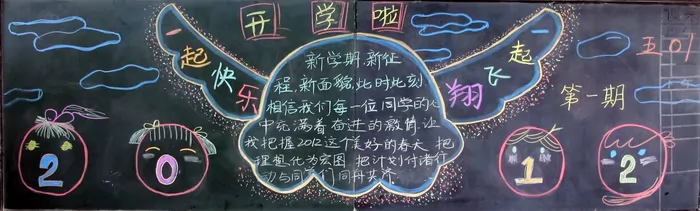 开学啦
一起快乐
一起翔飞
五01
第一期
新学期.新征
程.新面貌.此时此刻
相信我们每一位同学的心
中充满着奋进的激情.让
我把握2012这个美好的春天.把
理想化为宏图.把计划付诸行
动与同学们同舟共济
2012